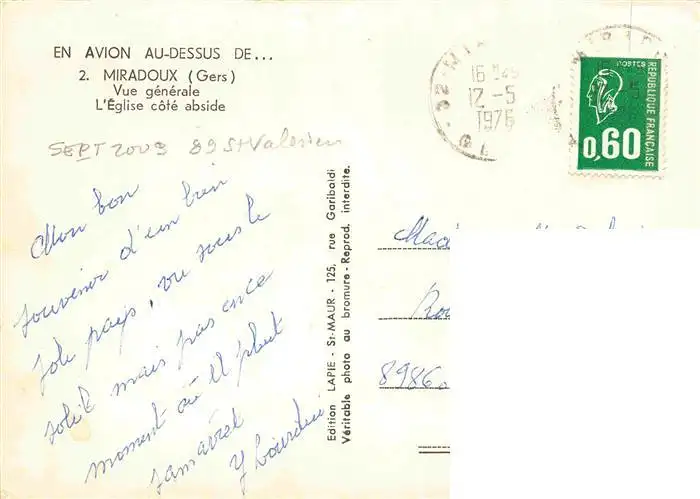 EN AVION AU-DESSUS DE...
2. MIRADOUX (Gers)
Vue générale
L'Église côté abside
SEPT 2009 89 St Valerien
Mon bon
souvenir d'un bien
joli pays, vu sous le
soleil mais pas en ce
moment où il pleut
Edition LAPIE - St-MAUR - 125, rue Garibaldi
Véritable photo au bromure - Reprod. interdite.
12-5
1976
POSTES
REPUBLIQUE FRANÇAISE
0,60